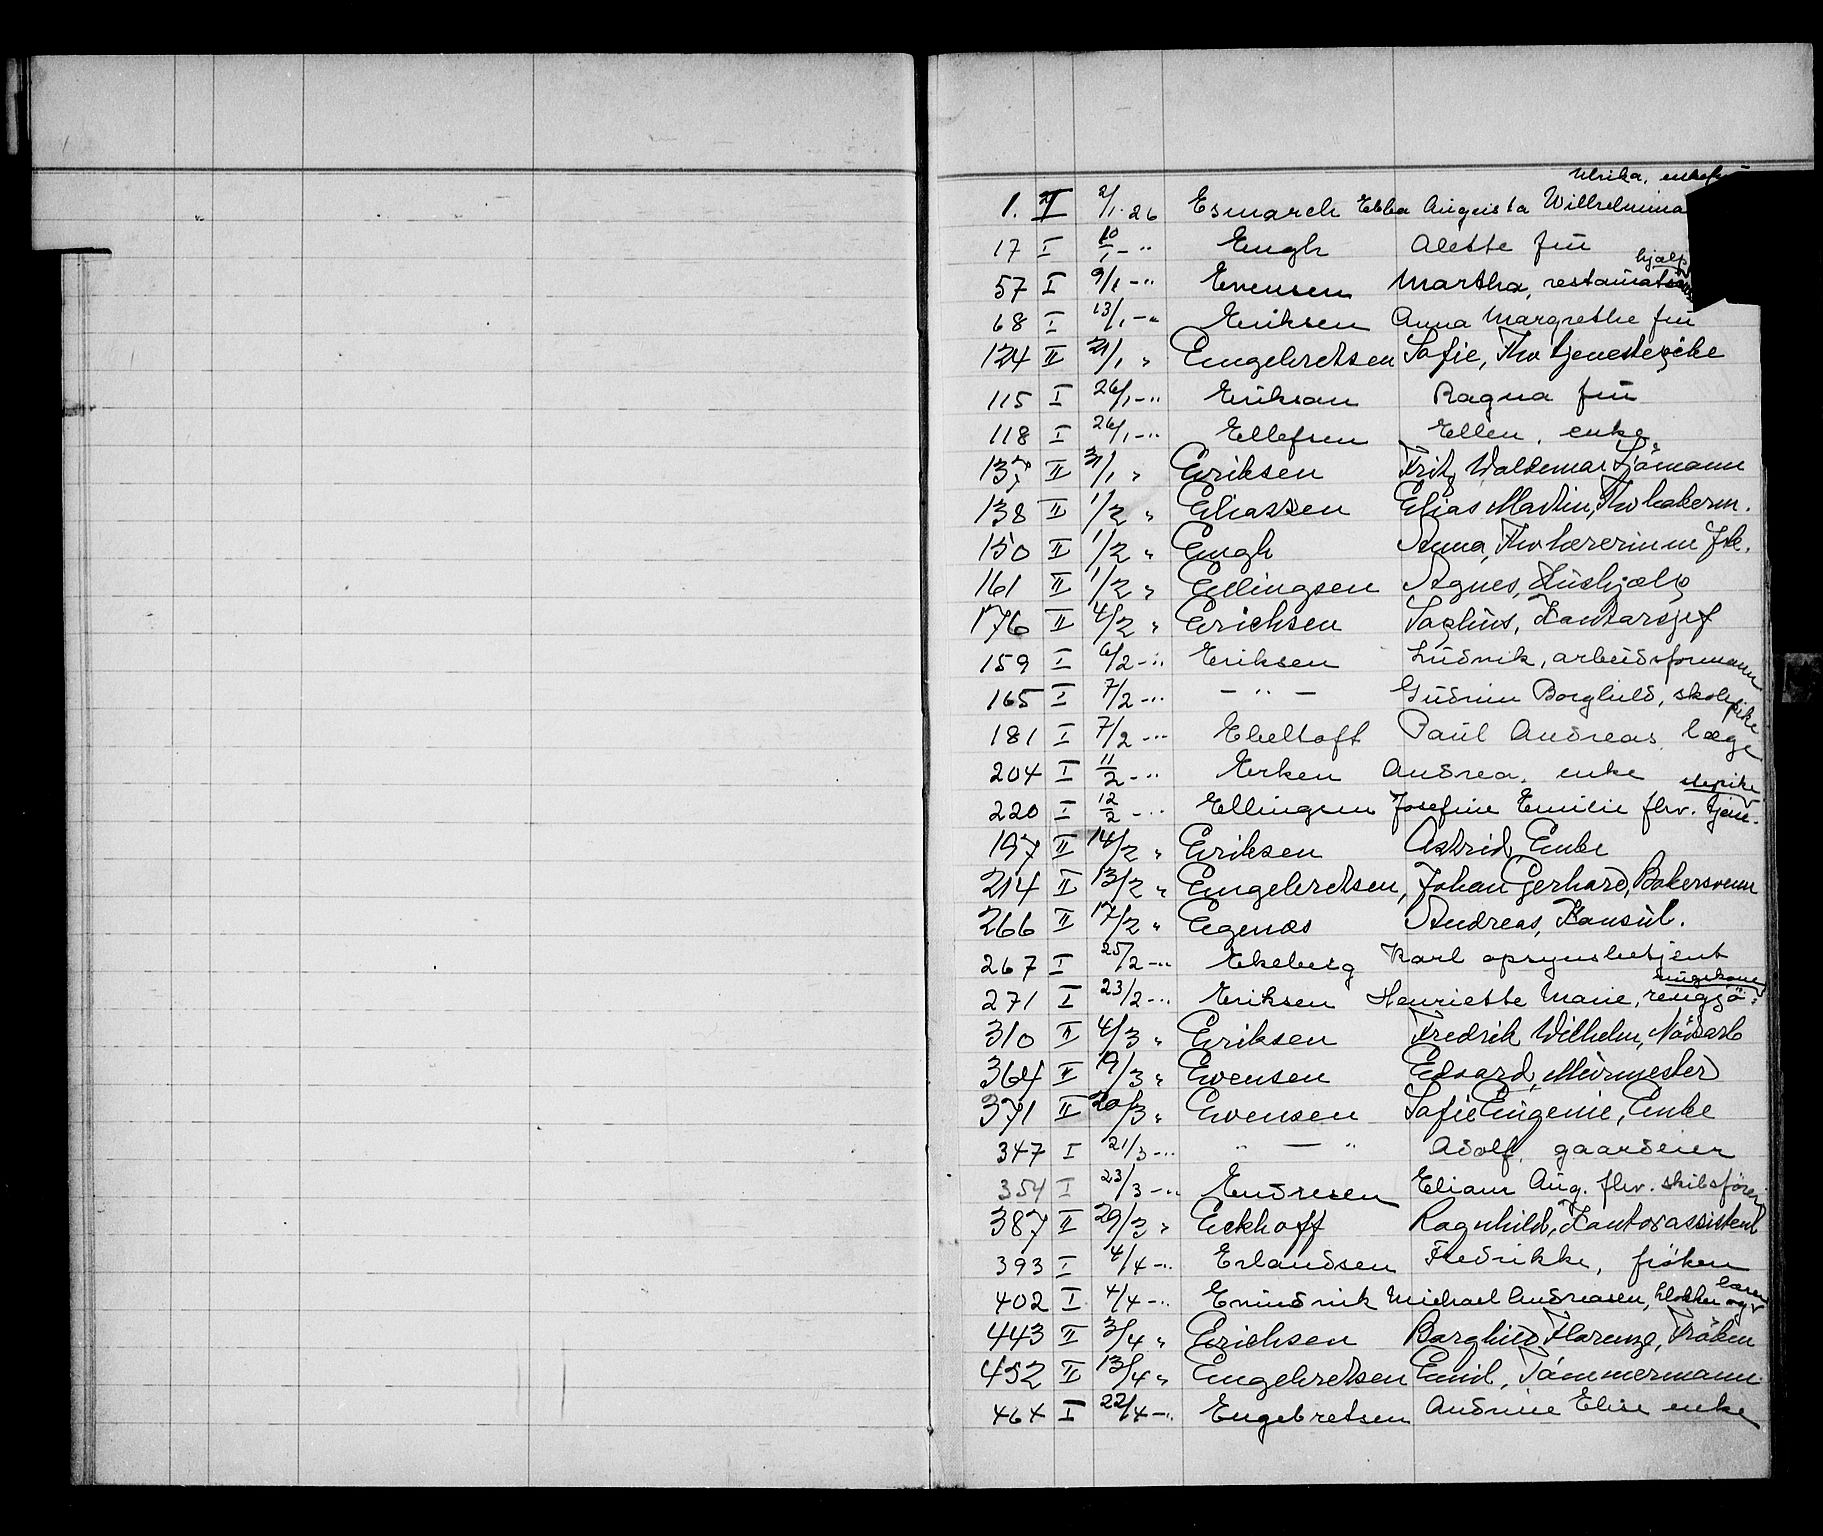 Ulrika, enkefru
1. II 2/1. 26 Esmarch Ebba Augusta Wilhelmina
17 I 10/1 - " Engh Alette fru
hjælp
57 I 9/1 - " Evensen Martha,
68 I 13/1 - " Eriksen Anna Margrethe fru
124 II 21/1 " Engebretsen Sofie, Fhv tjenestepike
115 I 26/1 - " Eriksen Ragna fru
118 I 26/1 - " Ellefsen Ellen, enke
137 II 31/1 " Eriksen Fritz Waldemar Sjömann
138 II 1/2 " Eliassen Elias Martin, Fhv bakerm.
150 II 1/2 " Engh Anna, Fhv lærerinne Frk.
161 II 1/2 " Ellingsen Agnes, Hushjælp
176 II 4/2 " Erichsen Sophus, Kontorsjef
159 I 6/2 - " Eriksen Ludvik, arbeidsformann
165 I 7/2 - " - " - Gudrun Borghild, skolepike
181 I 7/2 - " Ebeltoft Paul Andreas, læge
204 I 11/2 - " Erken Andrea, enke
stepike
220 I 12/2 - " Ellingsen Josefine Emilie fhv. tjen.
197 II 14/2 " Eriksen Astrid, Enke
214 II 13/2 " Engebretsen, Johan Gerhard, Bakersvenn
266 II 17/2 " Egenæs Andreas, Konsul.
267 I 25/2 - " Ekeberg Karl opsynsbetjent
ringskone
271 I 23/2 - " Eriksen Henriette Marie, rengjö-
310 II 4/3 " Eriksen Fredrik Wilhelm, Nödsarb
364 II 19/3 " Evensen Edvard, Murmester
371 II 20/3 " Evensen Sofie Eugenie, Enke
347 I 21/3 - " " - " Adolf, gaardeier
354 I 23/3 - " Endresen Eliam Aug. fhv. skibsfører
387 II 29/3 " Eckhoff Ragnhild, Kontorassistent
393 I 4/4 - " Erlandsen Fredrikke, frøken
lærer
402 I 4/4 - " Enindvik Michael Andreasen, klokker og
443 II 3/4 " Erichsen Borghild Florenze, Fröken
452 II 13/4 " Engebretsen Emil, Tömmermann
464 I 22/4 - " Engebretsen Andrine Elise enke